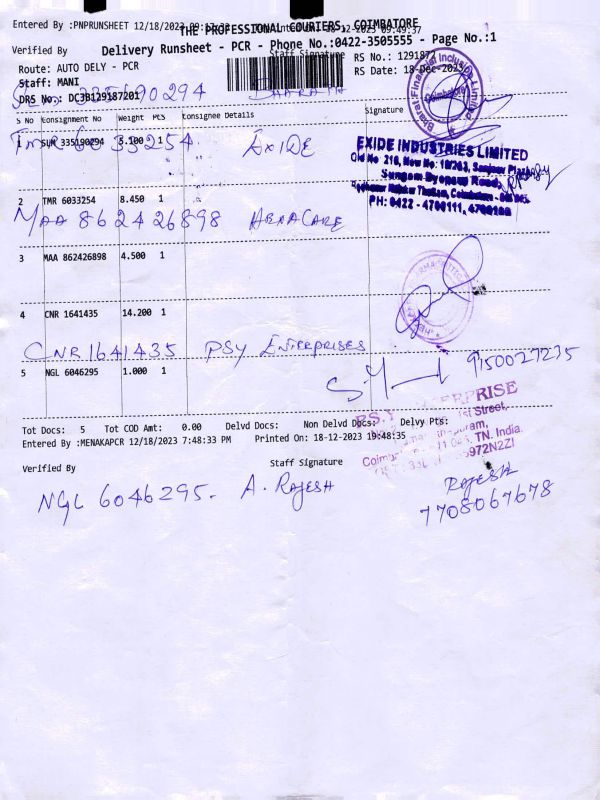 Entered By :PNPRUNSHEET 12/18/2023
THE PROFESSIONAL COURIERS, COIMBATORE
18-12-2023 09:49:37
Verified By
Staff Signature
Delivery Runsheet - PCR - Phone No.:0422-3505555 - Page No.:1
Route: AUTO DELY - PCR
RS No.: 1291872
Staff: MANI
RS Date: 18-Dec-2023
DRS No.: DC3B129187201
335190294 BHARATH
Bharat Financial Inclusion Limited
Coimbatore
S No Consignment No Weight PCS Consignee Details Signature
1 SUR 335190294 5.100 1
TMR 6033254. EXIDE
EXIDE INDUSTRIES LIMITED
Old No 216, New No: Sanjeev Plaza
Sangam Road,
PH: 0422 - 4700111,
2 TMR 6033254 8.450 1
MAA 862426898 HENACARE
3 MAA 862426898 4.500 1
4 CNR 1641435 14.200 1
CNR 1641435 PSY ENTERPRISES
9150027235
5 NGL 6046295 1.000 1
P.S.Y. ENTERPRISE
1st Street,
TN. India.
5972N2ZI
Tot Docs: 5 Tot COD Amt: 0.00 Delvd Docs: Non Delvd Docs: Delvy Pts:
Entered By :MENAKAPCR 12/18/2023 7:48:33 PM Printed On: 18-12-2023 19:48:35
Verified By Staff Signature
NGL 6046295. A. RAJESH
RAJESH
7708067678